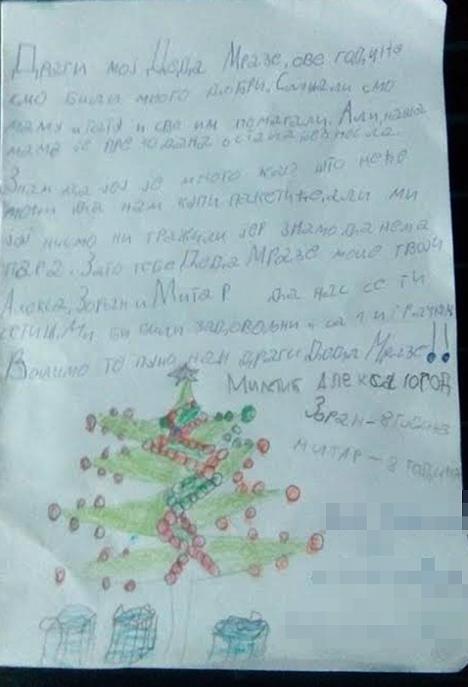 Драги мој Деда Мразе, ове године
смо били много добри. Слушали смо
маму и тату и све им помагали. Али, наша
мама је пре 10 дана остала без посла.
Знам да јој је много жао што неће
моћи да нам купи пакетиће, али ми
јој нисмо ни тражили јер знамо да нема
пара. Зато тебе Деда Мразе моле твоји
Алекса, Зоран и Митар да нас се ти
сетиш. Ми би били задовољни и са 1 играчком
Волимо те пуно наш драги Деда Мразе!!
Алекса 10 год
Зоран - 8 година
Митар - 8 година